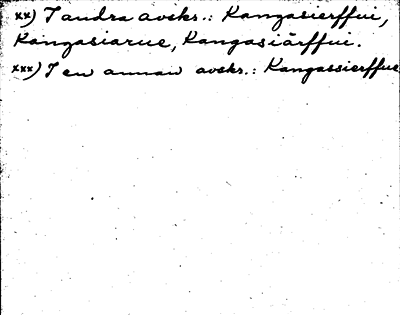 xx) I andra avskr.: Kangasierffui,
Kangasiarue, Kangasiärffui.
xxx) I en annan avskr.: Kangassierffue